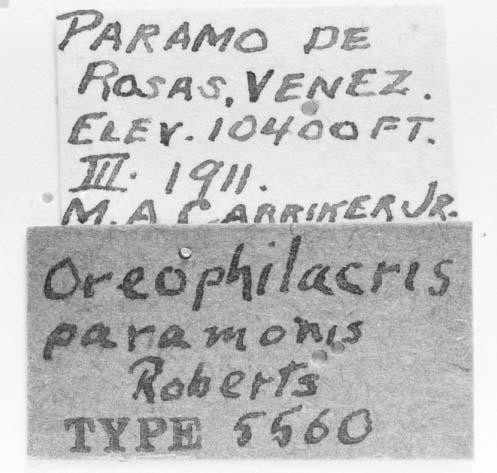 PARAMO DE
ROSAS, VENEZ.
ELEV. 10400 FT.
III. 1911.
M.A. CARRIKER JR.
Oreophilacris
paramonis
Roberts
TYPE 5560